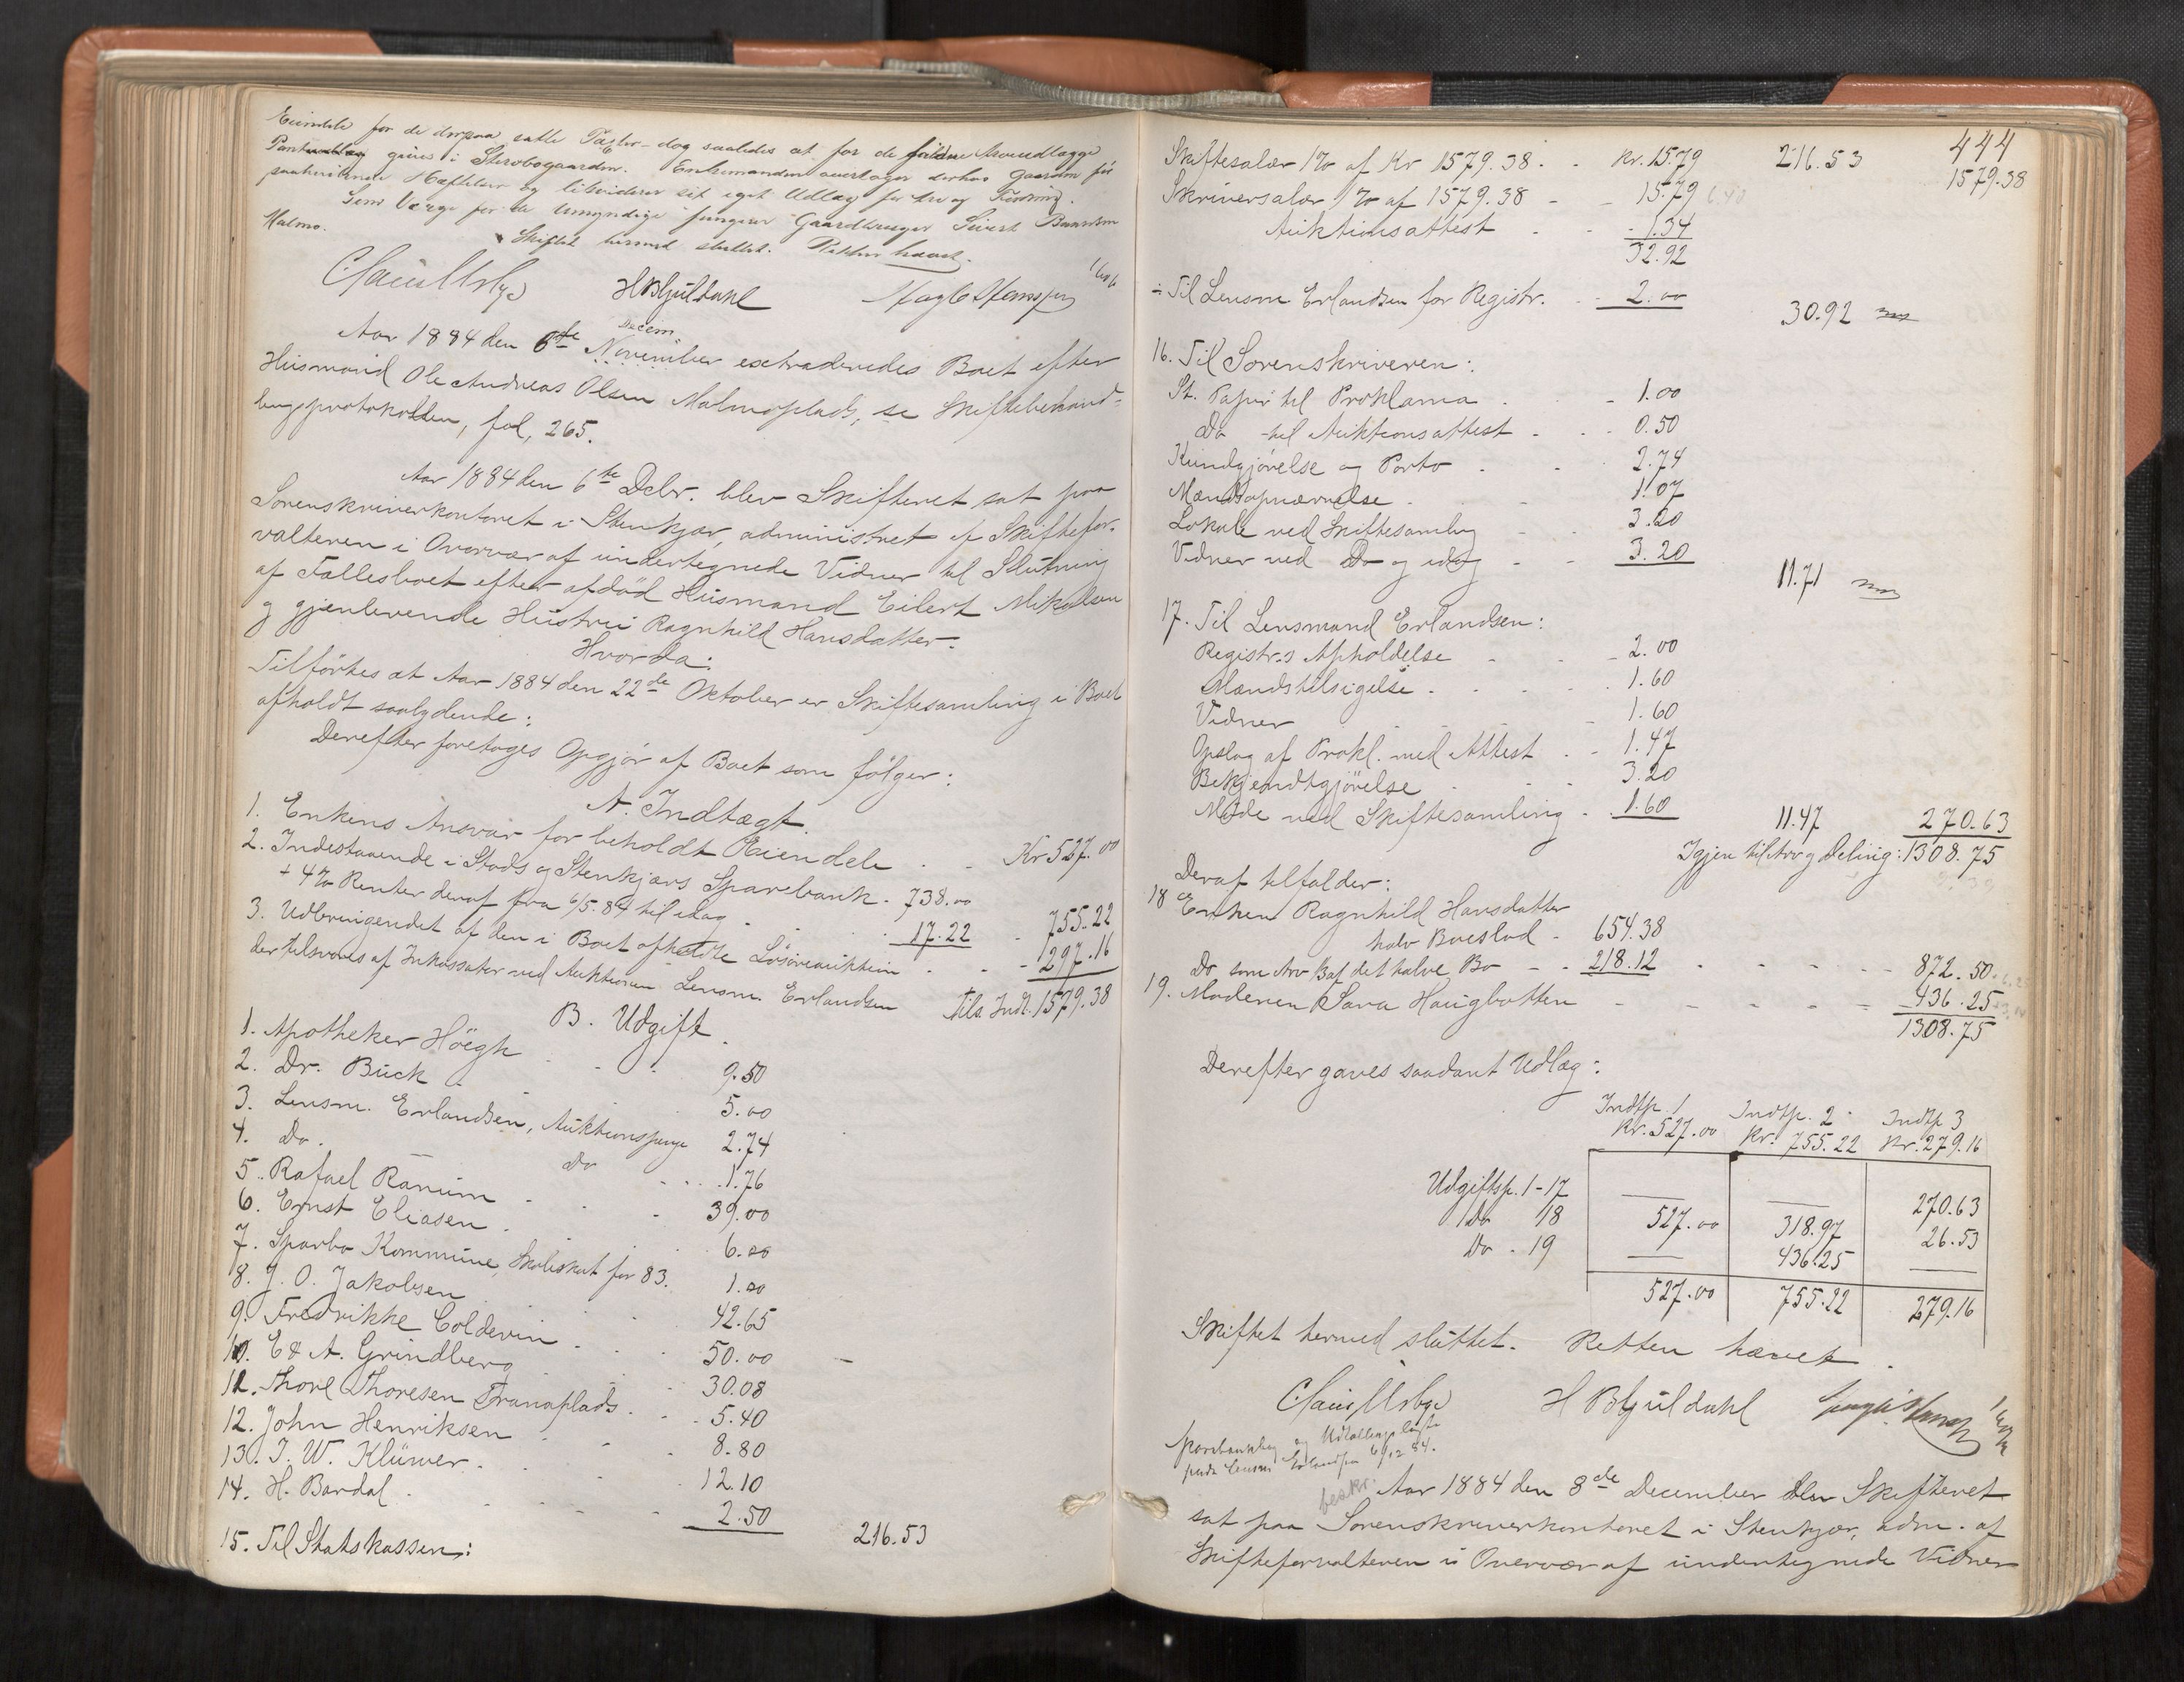 Eiendele for de derpaa satte Taxter - dog saaledes at for de faldne Arveudlægge
Pantudlæg gives i Skrovbogaarden. Enkemanden overtager derhos Gaarden för
paahvilende Hæftelser og likviderer sit eget Udlæg for Arv og Fordring.
Som Værge for de umyndige fungerer Gaardbruger Sivert
Malmo.
Skiftet hermed sluttet. Retten hævet.
H Bhjuldahl
Aar 1884 den 6te Novemiber extraderedes Boet efter
Decem
Husmand Ole Andreas Olsen Malmoplads, se Skiftebehand-
lingsprotokollen, fol, 265.
Aar 1884 den 6te Debr. blev Skifteret sat paa
Sorenskriverkontoret i Stenkjær, administret af Skiftefor-
valteren i Overvær af undertegnede Vidner til Slutning
af Fællesboet efter afdöd Husmand Eilert Mikalsen
og gjenlevende Hustru Ragnhild Hansdatter.
Hvorda:
Tilförtes at Aar 1884 den 22de Oktober er Skiftesamling i Boet
afholdt saalydende:
Derefter foretoges Opgjör af Boet som fölger:
A. Indtægt.
1. Enkens Ansvar for beholdt Eiendele . - Kr 527.00
2. Indestaaende i Stods og Stenkjærs Sparebank - 738.00
+ 4% Renter deraf fra 6/5.84 til idag . 17.22 - 755.22
3. Udbringendet af den i Boet afholdte Lösöreauktion - 297.16
der tilsvares af Inkassator ved Auktionen Lensm. Erlandsen Tils. Indt. 1579.38
B. Udgift.
1. Apotheker Höegh . 9.50
2. Dr. Buck . 5.00
3. Lensm. Erlandsen, Auktionspenge 2.74
4. Do. Do . 1.76
5. Rafael Ranum . 39.00
6. Ernst Eliasen . 6.00
7. Sparbo Kommune, Skoleskat for 83. 1.00
8. J. O. Jakobsen 42.65
9. Fredrikke Coldevin . 50.00
10. E & A. Grindberg 30.08
11. Thore Thoresen Tranaplads . 5.40
12. John Henriksen . 8.80
13. J. W. Klüwer . 12.10
14. H. Bardal . 2.50 216.53
15. Til Statskassen:
444
Skiftesalær 1% af Kr 1579.38 . - Kr. 15.79 216.53 1579.38
Skriversalær 1% af 1579.38 - - 15.79
Auktionsattest - - 1.34
32.92
÷ Til Lensm Erlandsen for Registr. - 2.00 30.92
16. Til Sorenskriveren:
St. Papir til Proklama . - 1.00
Do til Auktionsattest - . - 0.50
Kundgjörelse og Porto . - 2.74
Mændsopnævnelse . - 1.07
Lokale ved Skiftesamling - 3.20
Vidner ved Do og idag - - 3.20 11.71
17. Til Lensmand Erlandsen:
Registr.s Afholdelse - - 2.00
Mændstilsigelse . . 1.60
Vidner - 1.60
Opslag af Prokl. med Attest . - 1.47
Bekjendtgjörelse . 3.20
Möde ved Skiftesamling . 1.60 11.47 270.63
Igjen til Arv og Deling: 1308.75
Deraf tilfalder:
18 Enken Ragnhild Hansdatter
halv Boeslod - 654.38
Do som Arv af det halve Bo - - 218.12 - - - 872.50
19. Moderen Sara Haugbotten - - - - 436.25
1308.75
Derefter gaves saadant Udlæg:
Indtp. 1 Indtp. 2 Indtp 3
Kr. 527.00 Kr. 755.22 Kr. 279.16
Udgiftsp. 1-17 — — 270.63
Do 18 527.00 318.97 26.53
Do - 19 — 436.25 —
527.00 755.22 279.16
Skiftet hermed sluttet. Retten hævet.
H Bhjuldahl
Sparebankbog og Udtællingsliste
Lensm Erlandsen 6/12 84.
beskr.
Aar 1884 den 8de December blev Skifteret
sat paa Sorenskriverkontoret i Stenkjær, adm. af
Skifteforvalteren i Overvær af undertegnede Vidner